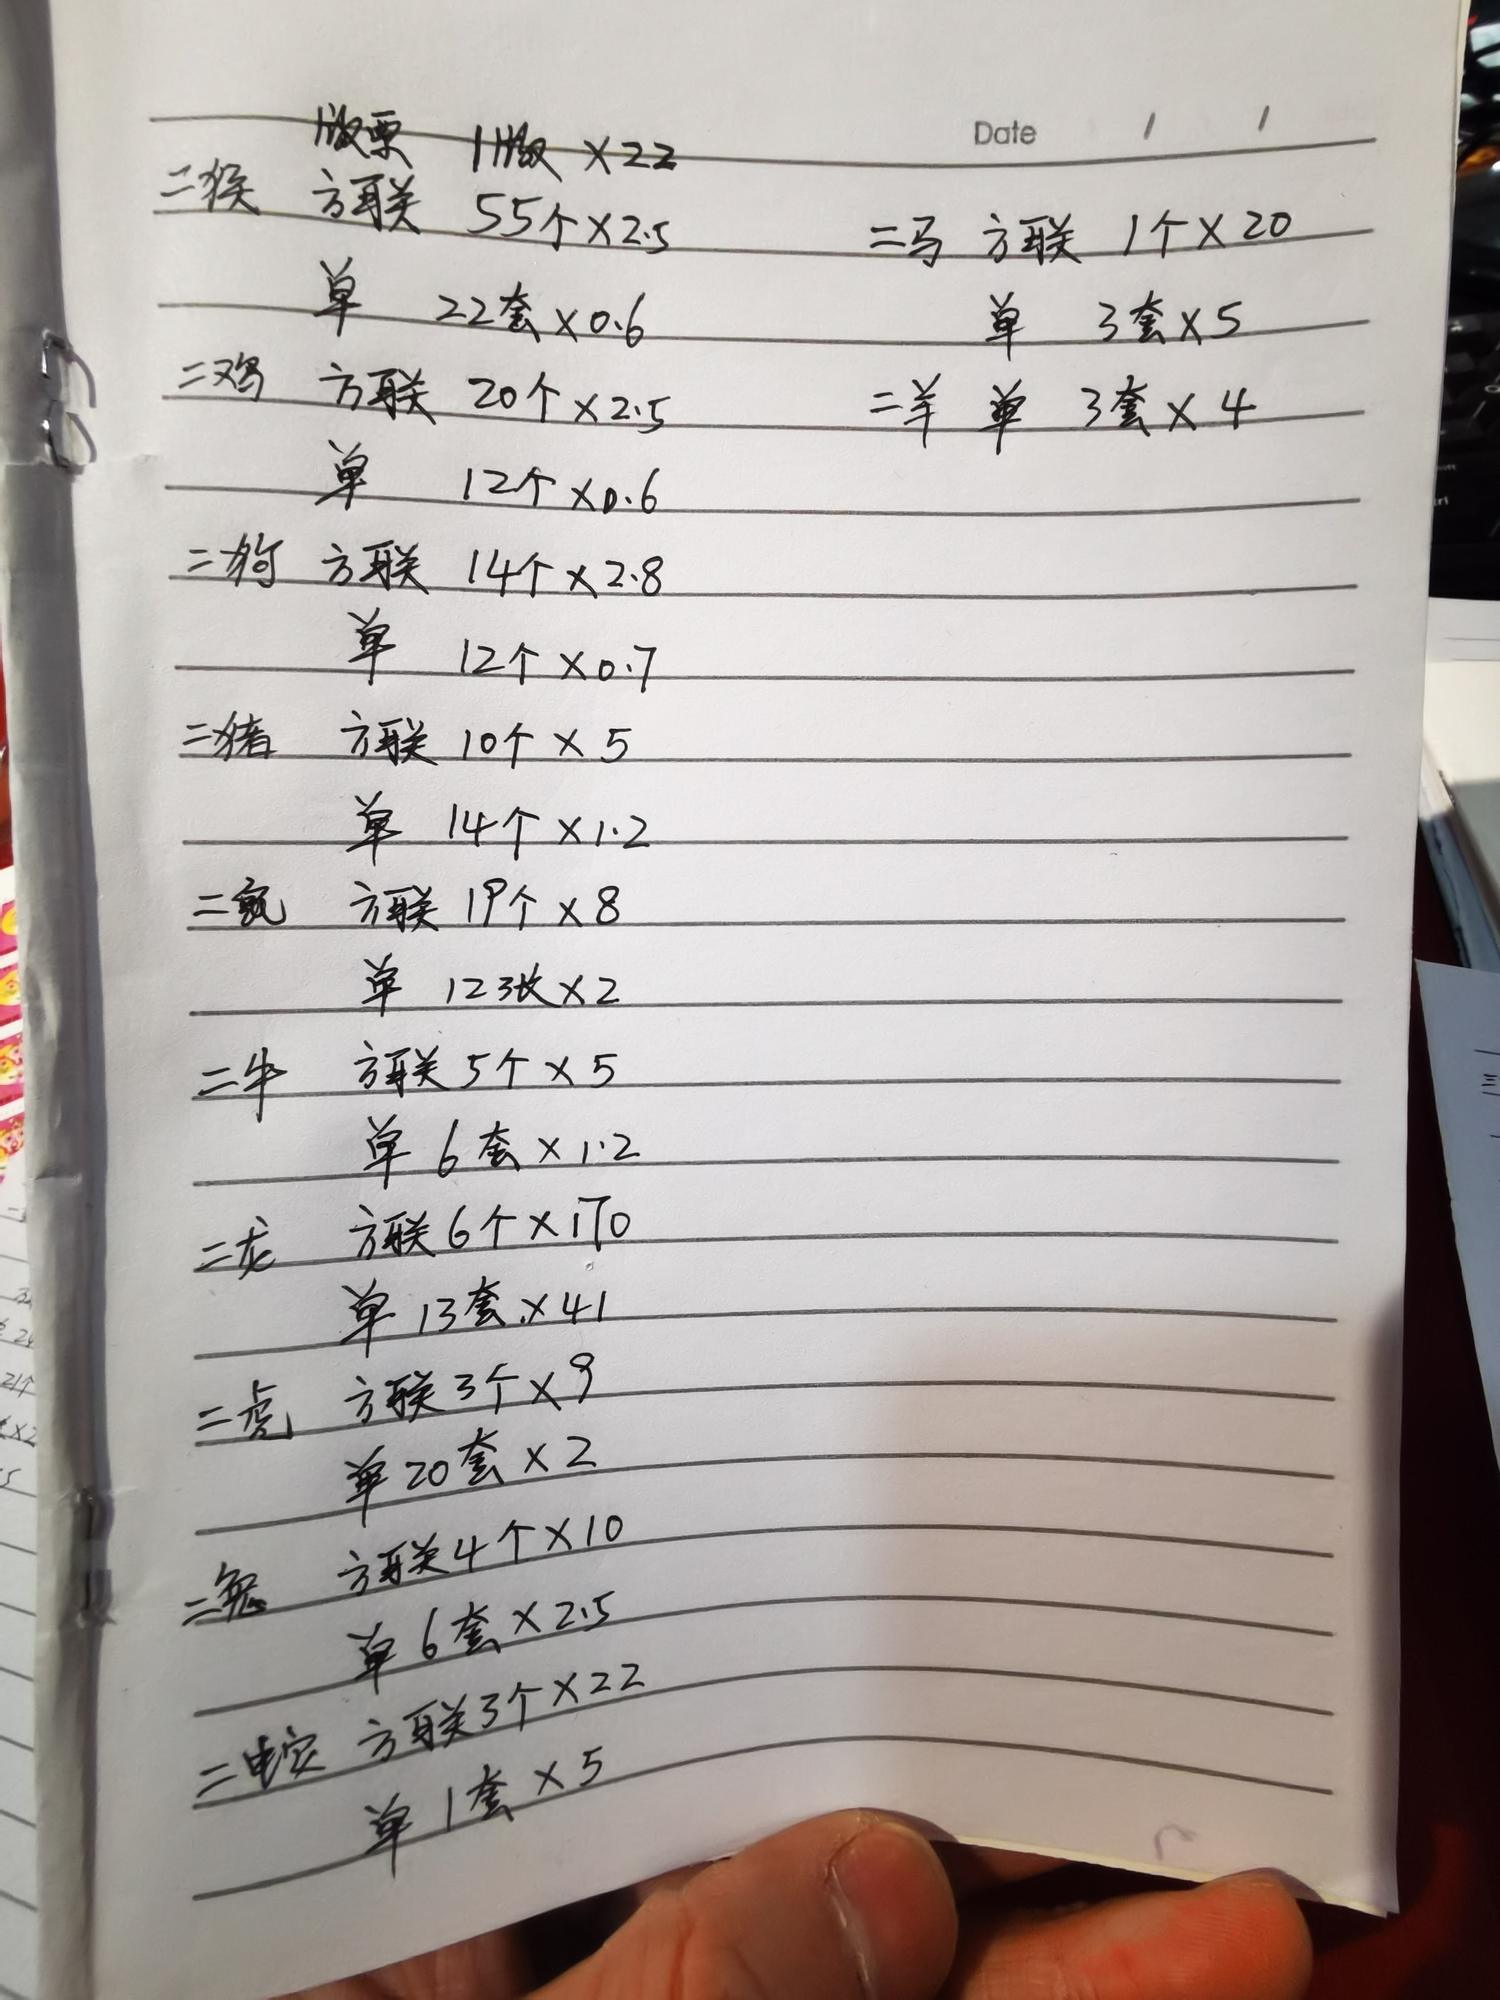 Date / /
版票 1版 ×22
二猴 方联 55个×2.5
单 22套×0.6
二鸡 方联 20个×2.5
单 12个×0.6
二狗 方联 14个×2.8
单 12个×0.7
二猪 方联 10个×5
单 14个×1.2
二鼠 方联 19个×8
单 12张×2
二牛 方联 5个×5
单 6套×1.2
二龙 方联 6个×170
单 13套×41
二虎 方联 3个×9
单 20套×2
二兔 方联 4个×10
单 6套×2.5
二蛇 方联 3个×22
单 1套×5
二马 方联 1个×20
单 3套×5
二羊 单 3套×4